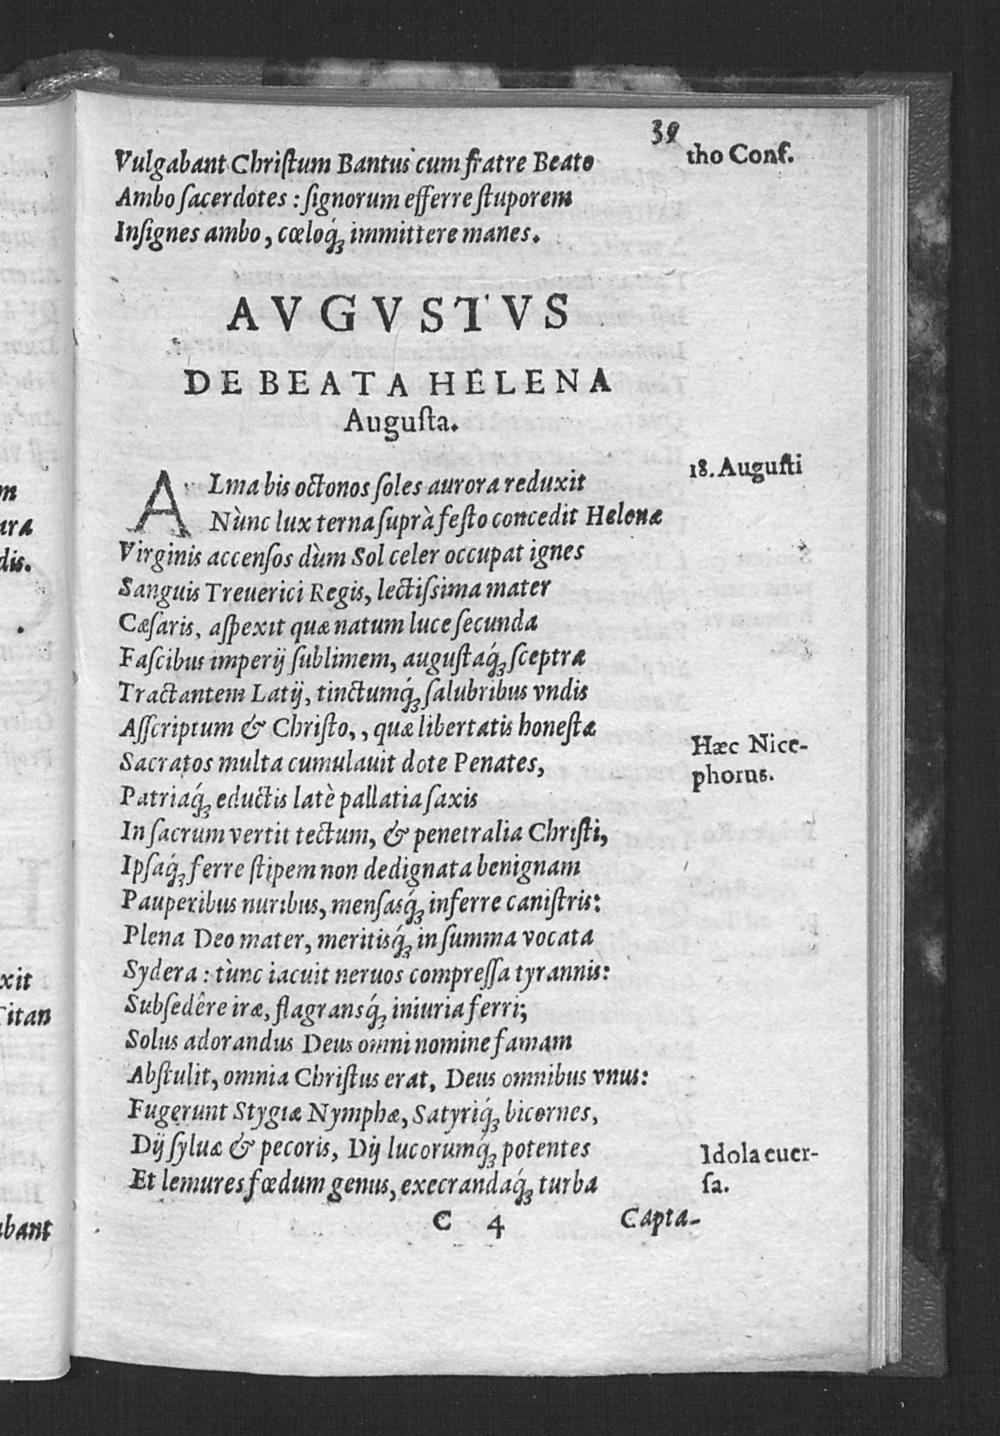 39
Vulgabant Chriſtum Bantus cum fratre Beato
tho Conf.
Ambo ſacerdotes : ſignorum efferre ſtuporem
Inſignes ambo, cœloq́ꝫ immittere manes.
AVGVSTVS
DE BEATA HELENA
Auguſta.
18. Auguſti
ALma bis octonos ſoles aurora reduxit
Nùnc lux terna ſuprà feſto concedit Helenæ
Virginis accenſos dùm Sol celer occupat ignes
Sanguis Treuerici Regis, lectiſsima mater
Cæſaris, aſpexit quæ natum luce ſecunda
Faſcibus imperij ſublimem, auguſtaq́ꝫ ſceptra
Tractantem Latij, tinctumq́ꝫ ſalubribus vndis
Aſſcriptum & Chriſto, , quæ libertatis honeſtæ
Hæc Nice-
phorus.
Sacratos multa cumulauit dote Penates,
Patriaq́ꝫ eductis latè pallatia ſaxis
In ſacrum vertit tectum, & penetralia Chriſti,
Ipſaq́ꝫ ferre ſtipem non dedignata benignam
Pauperibus nuribus, menſasq́ꝫ inferre caniſtris:
Plena Deo mater, meritisq́ꝫ in ſumma vocata
Sydera : tùnc iacuit neruos compreſſa tyrannis:
Subſedêre iræ, flagransq́ꝫ iniuria ferri;
Solus adorandus Deus omni nomine famam
Abſtulit, omnia Chriſtus erat, Deus omnibus vnus:
Fugerunt Stygiæ Nymphæ, Satyriq́ꝫ bicornes,
Dij ſyluæ & pecoris, Dij lucorumq́ꝫ potentes
Idola euer-
ſa.
Et lemures fœdum genus, execrandaq́ꝫ turba
C 4
Capta-